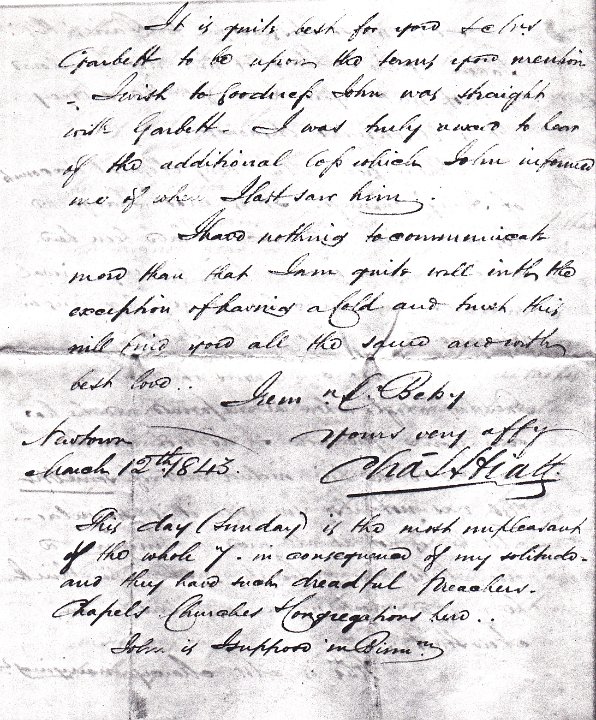 It is quite best for you & Mrs
Garbett to be upon the terms you mention
- I wish to Goodness John was straight
with Garbett - I was truly to hear
of the additional loss which John informed
me of when I last saw him.
I have nothing to communicate
more than that I am quite well with the
exception of having a Cold and trust this
will find you all the same and with
best love..
I rem n. Baby
Yours very affy
Newtown
March 12th 1843.
Chas Hiatt
This day (Sunday) is the most unpleasant
of the whole 7. in consequence of my solitude -
and they have such dreadful Preachers.
Chapels. Churches Congregations here..
John is I suppose in Birmm